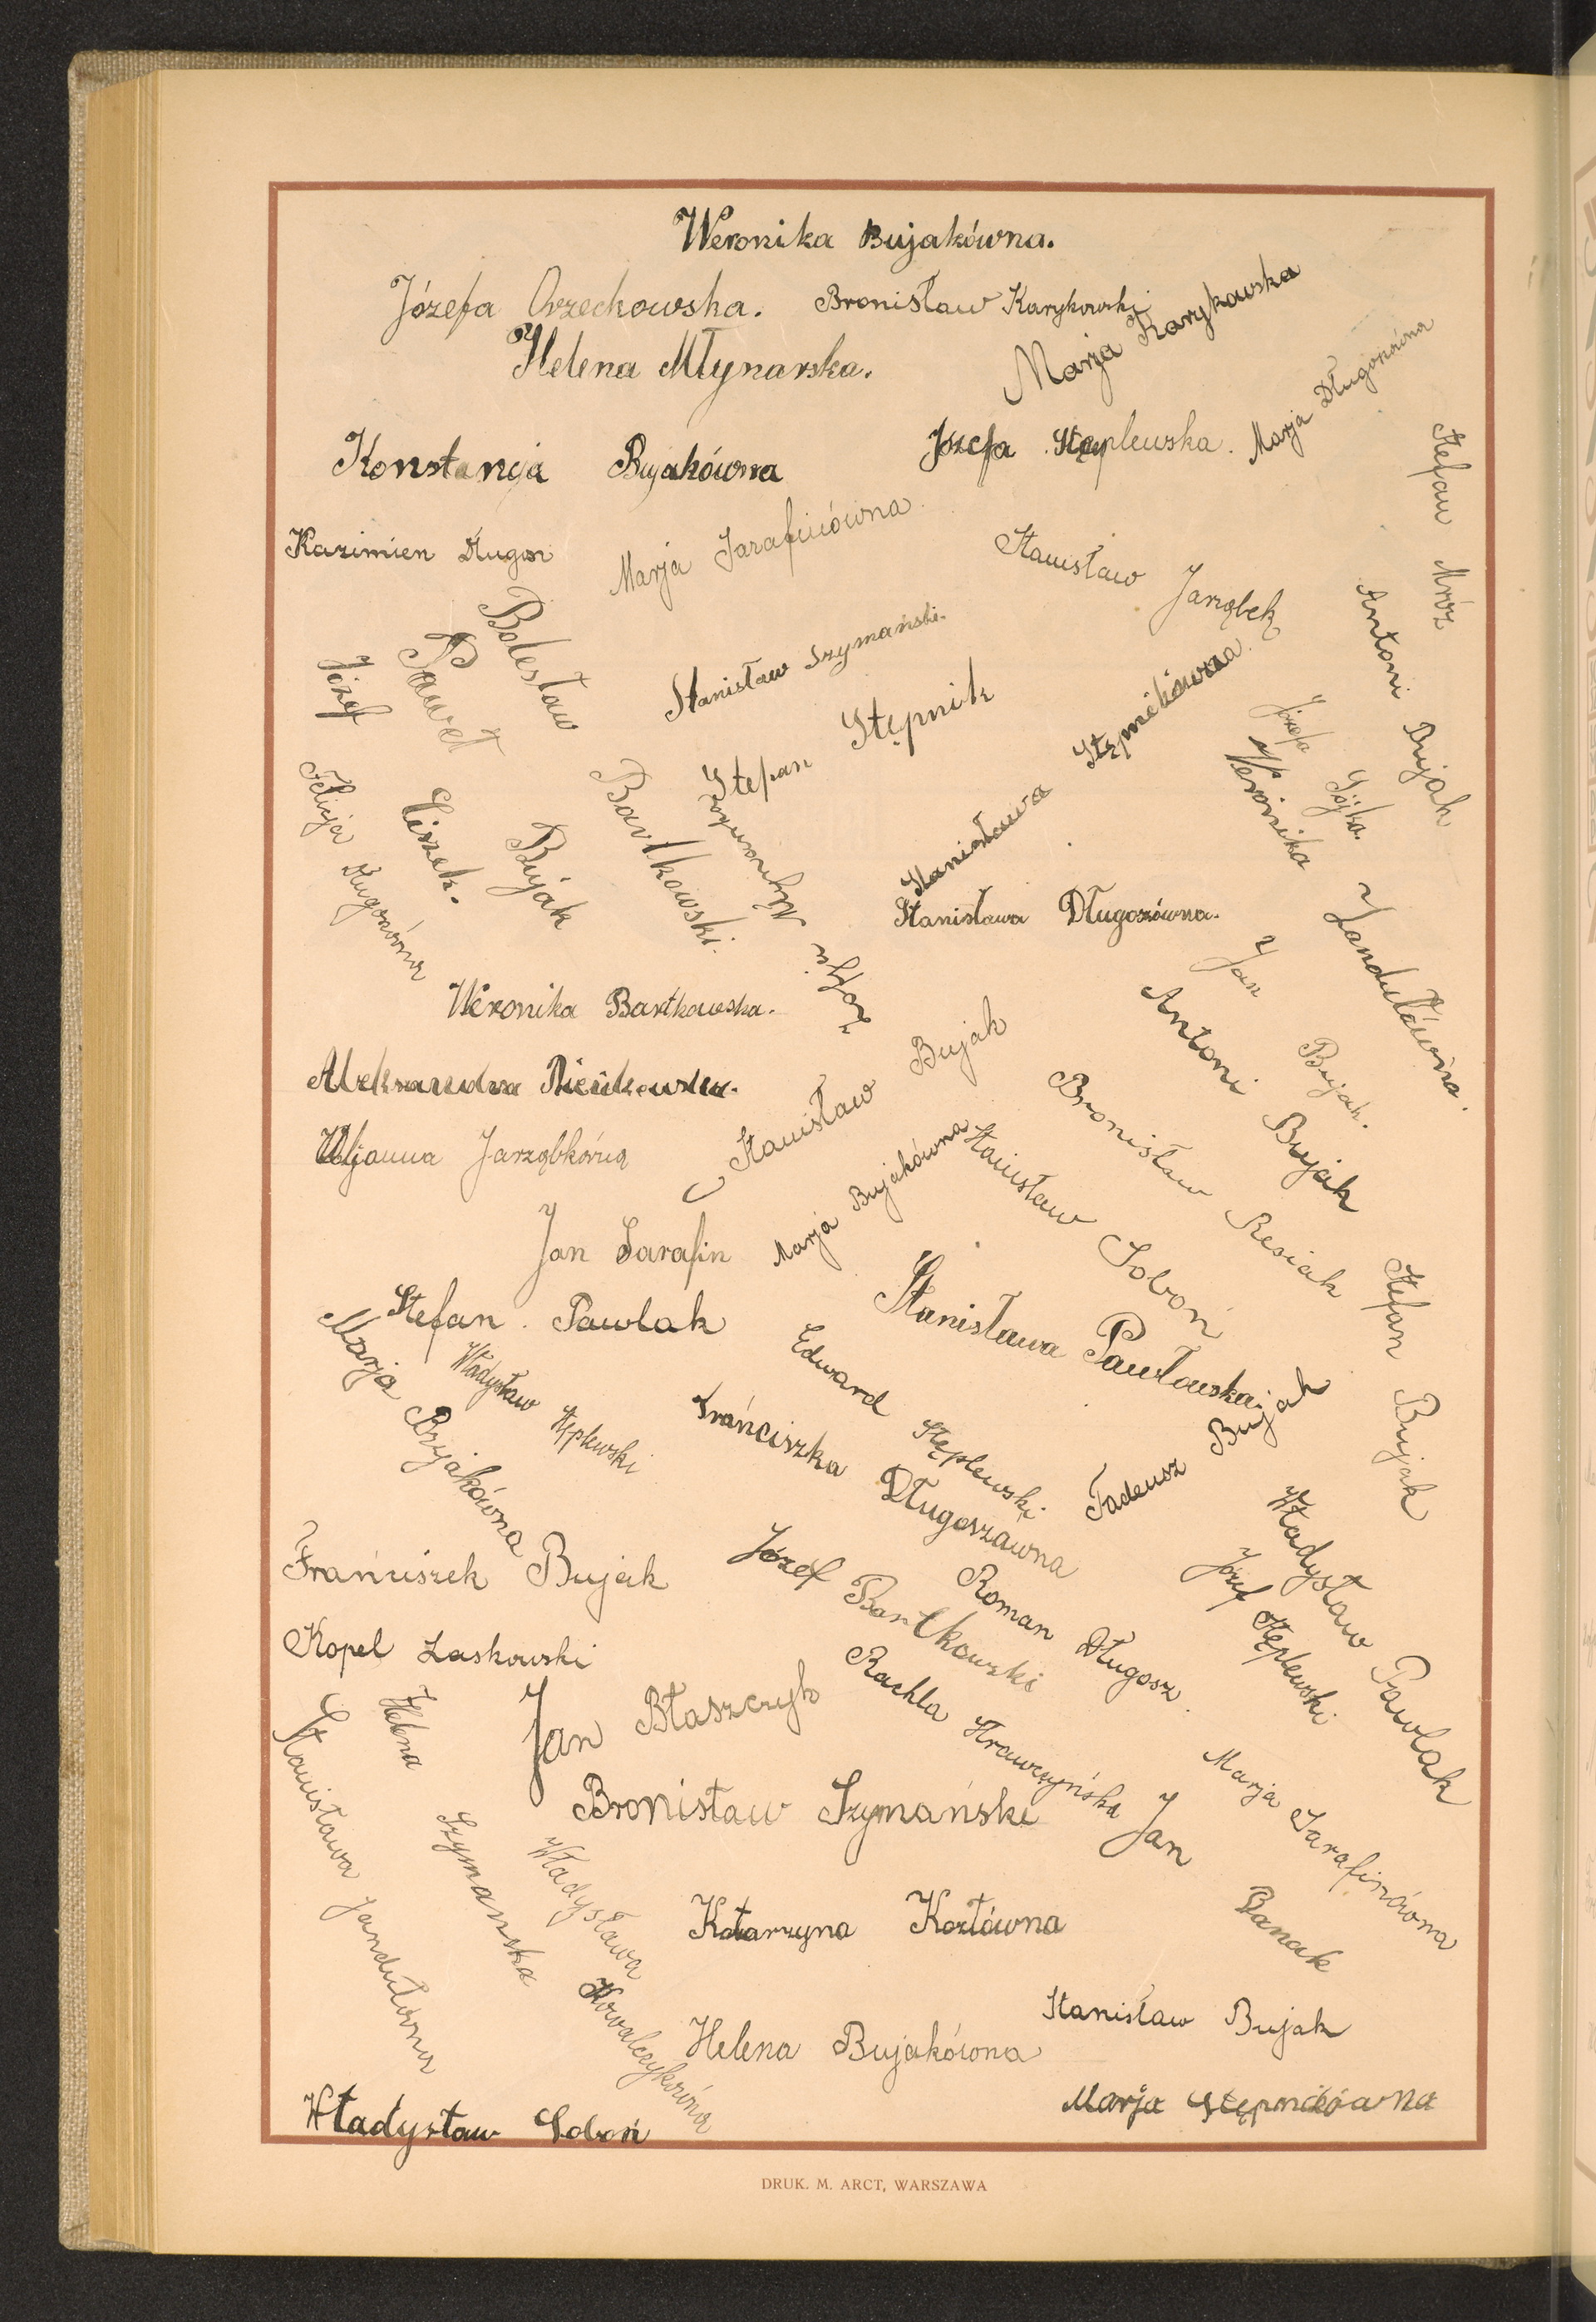 Weronika Bujakówna.
Józefa Orzechowska.
Bronisław Karykowski
Marja Karykowska
Helena Młynarska.
Marja Długoszówna
Konstancja Bujakówna
Józefa Stęplewska.
Stefan Mróz
Kazimierz Długosz
Marja Sarafinówna
Stanisław Jarząbek
Antoni Bujak
Józef
Paweł Ciszek.
Bolesław Bartkowski.
Bujak
Stanisław Szymański.
Stefan Stępnik
Stanisława Stępnikówna.
Józefa Sójka.
Weronika Jandułówna.
Felicja Długoszówna
Zofja Młynarska
Stanisława Długoszówna.
Jan Bujak.
Weronika Bartkowska.
Antoni Bujak
Aleksandra
Stanisław Bujak
Bronisław Resiak
Uljanna Jarząbkówna
Marja Bujakówna
Stanisław Soboń
Jan Sarafin
Stefan Bujak
Stefan Pawlak
Stanisława Pawłowska
Marja Bujakówna
Władysław Stęplewski
Edward Stęplewski
Franciszka Długoszówna
Tadeusz Bujak
Władysław Pawlak
Franciszek Bujak
Józef Bartkowski
Roman Długosz
Józef Stęplewski
Kopel Laskowski
Rachla Strawczyńska
Jan Błaszczyk
Helena Szymanska
Stanisława Jandułówna
Marja Sarafinówna
Bronisław Szymański
Jan Banak
Władysława Kowalczykówna
Katarzyna Kozłówna
Stanisław Bujak
Helena Bujakówna
Marja Stępnikówna
Władysław Soboń
DRUK. M. ARCT, WARSZAWA